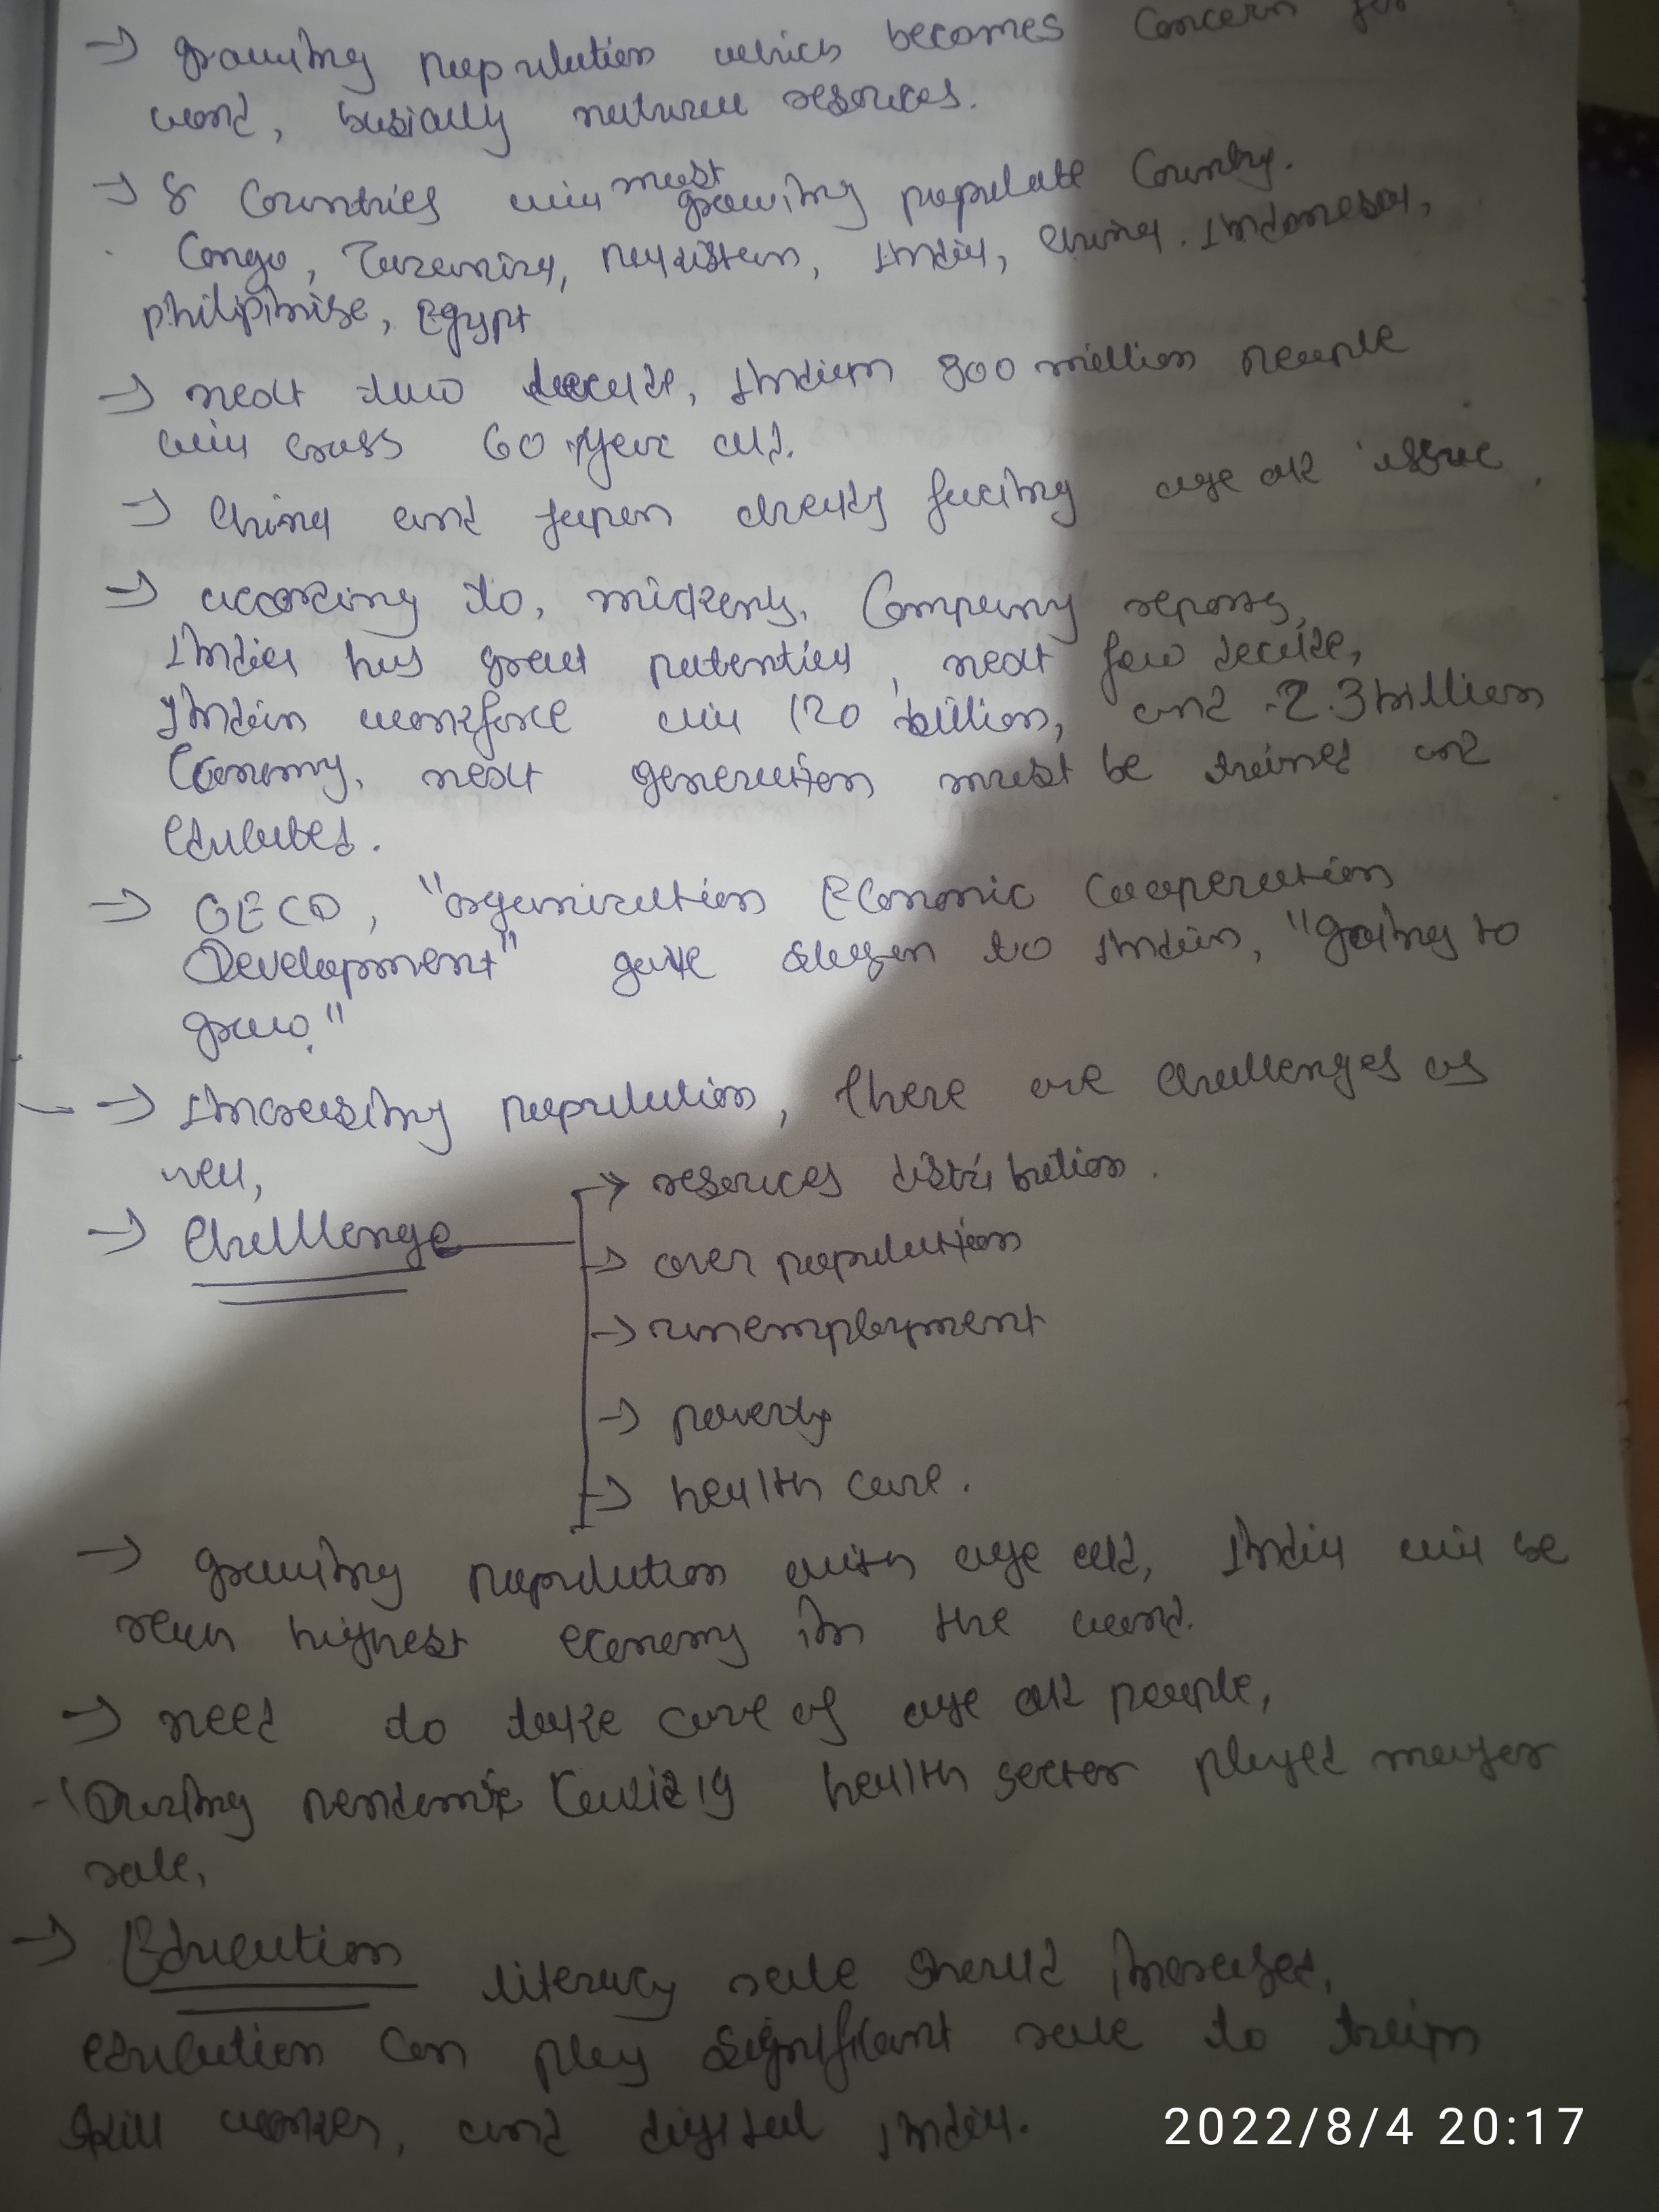 → growing population which becomes concern for
world, basically nature resources.
→ 8 Countries will most growing populate Country.
Congo, Tanzania, Pakistan, India, China. Indonesia,
philipinise, Egypt
→ next two decade, Indian 800 million people
will cross 60 year old.
→ China and japan already facing age old issue.
→ according to, Company reports,
India has great potential, next few decade,
Indian workforce will 120 billion, and 2.3 billion
Economy, next generation must be trained and
Educated.
→ OECD, "organization Economic Cooperation
Development" gave slogan to Indian, "going to
grow."
→ Increasing population, there are challenges as
well,
→ Challlenge
→ resources distribution.
→ over population
→ unemployment
→ poverty
→ health care.
→ growing population with age old, India will be
highest economy in the world.
→ need to take care of age old people,
During pandemic Covid 19 health sector played mayer
role,
→ Education literacy rate should increased,
education can play significant role to train
skill worker, and digital India.
2022/8/4 20:17